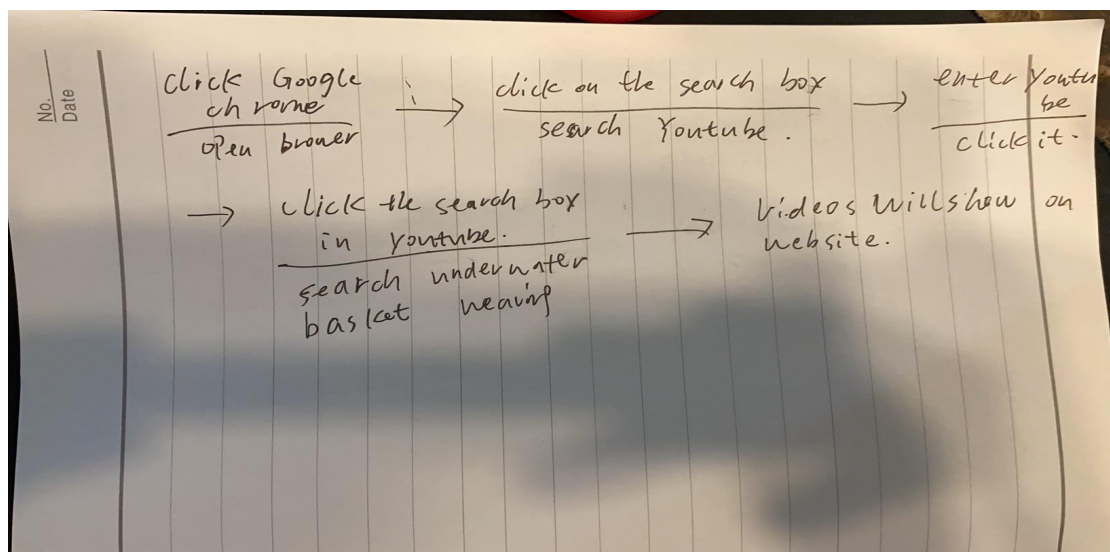 No.
Date
click Google
chrome
open brower
click on the search box
search Youtube.
enter youtu
be
click it.
click the search box
in youtube.
search underwater
basket weaving
Videos will show on
website.